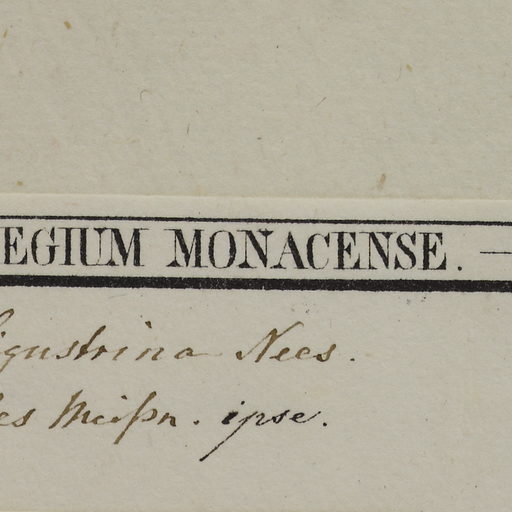 EGIUM MONACENSE. —
igustrina Nees.
es Meißn. ipse.